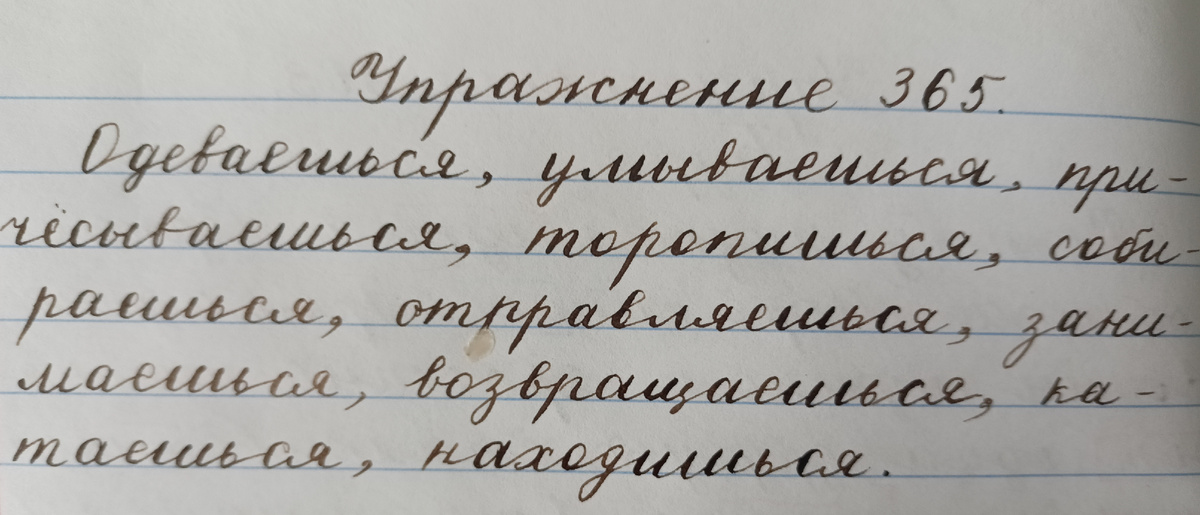 Упражнение 365.
Одеваешься, умываешься, при-
чёсываешься, торопишься, соби-
раешься, отправляешься, зани-
маешься, возвращаешься, ка-
таешься, находишься.